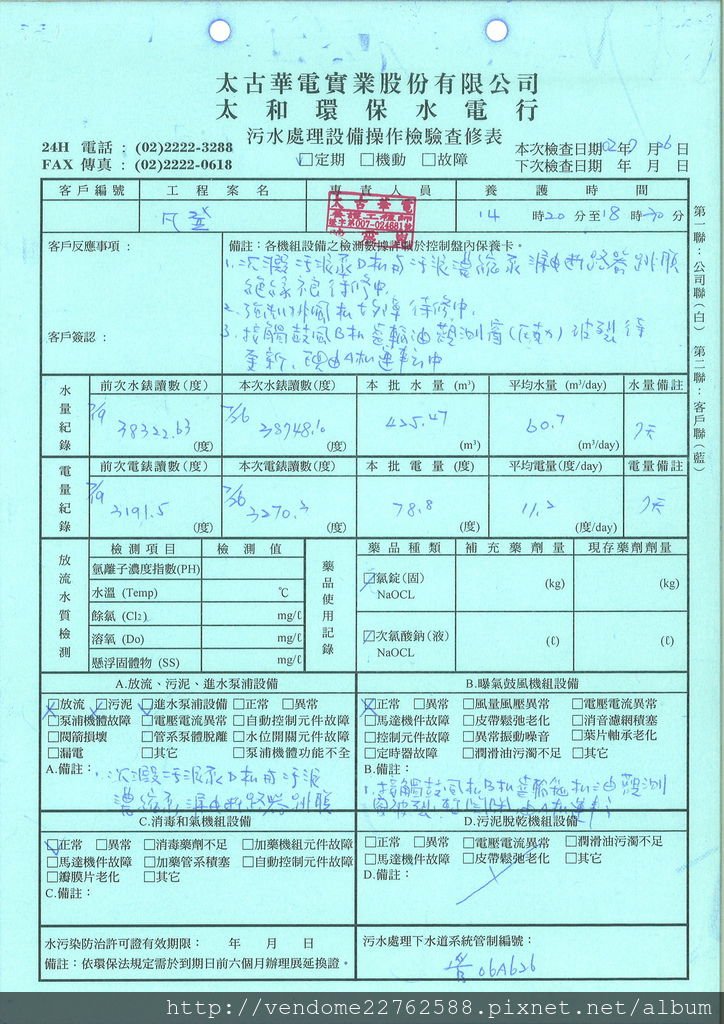 太古華電實業股份有限公司
太和環保水電行
污水處理設備操作檢驗查修表
24H 電話：(02)2222-3288
FAX 傳真：(02)2222-0618
☑定期 □機動 □故障
本次檢查日期 02年7月26日
下次檢查日期 年 月 日
客戶編號 工程案名 專責人員 養護時間
凡登
太古華電
14時20分至18時30分
客戶反應事項：
客戶簽認：
備註：各機組設備之檢測數據詳載於控制盤內保養卡。
1. 沉澱污泥泵D松
絕緣 待修中
待修中
3. 接觸鼓風B松齒輪油觀測窗 破裂待
更新
第一聯：公司聯(白) 第二聯：客戶聯(藍)
水量紀錄
前次水錶讀數(度) 本次水錶讀數(度) 本批水量 (m³) 平均水量 (m³/day) 水量備註
7/9 38322.63 (度) 7/26 38748.10 (度) 425.47 (m³) 60.7 (m³/day) 7天
電量紀錄
前次電錶讀數(度) 本次電錶讀數(度) 本批電量 (度) 平均電量(度/day) 電量備註
7/9 3191.5 (度) 7/26 3270.3 (度) 78.8 (度) 11.2 (度/day) 7天
放流水質檢測
檢測項目 檢測值
氫離子濃度指數(PH)
水溫 (Temp) ℃
餘氯 (Cl₂) mg/ℓ
溶氧 (Do) mg/ℓ
懸浮固體物 (SS) mg/ℓ
藥品使用記錄
藥品種類 補充藥劑量 現存藥劑劑量
☑氯錠(固) (kg) (kg)
NaOCL
☑次氯酸鈉(液) (ℓ) (ℓ)
NaOCL
A.放流、污泥、進水泵浦設備
☑放流 ☑污泥 ☑進水泵浦設備 □正常 □異常
□泵浦機體故障 □電壓電流異常 □自動控制元件故障
□閥箭損壞 □管系泵體脫離 □水位開關元件故障
□漏電 □其它 □泵浦機體功能不全
A.備註：
沉澱污泥泵D松
B.曝氣鼓風機組設備
☑正常 □異常 □風量風壓異常 □電壓電流異常
□馬達機件故障 □皮帶鬆弛老化 □消音濾網積塞
□控制元件故障 □異常振動噪音 □葉片軸承老化
□定時器故障 □潤滑油污濁不足 □其它
B.備註：
1. 接觸鼓風 B松齒輪 油觀測
C.消毒和氣機組設備
☑正常 □異常 □消毒藥劑不足 □加藥機組元件故障
□馬達機件故障 □加藥管系積塞 □自動控制元件故障
□瓣膜片老化 □其它
C.備註：
D.污泥脫乾機組設備
□正常 □異常 □電壓電流異常 □潤滑油污濁不足
□馬達機件故障 □皮帶鬆弛老化 □其它
D.備註：
水污染防治許可證有效期限： 年 月 日
備註：依環保法規定需於到期日前六個月辦理展延換證。
污水處理下水道系統管制編號：
06A626
http://vendome22762588.pixnet.net/album